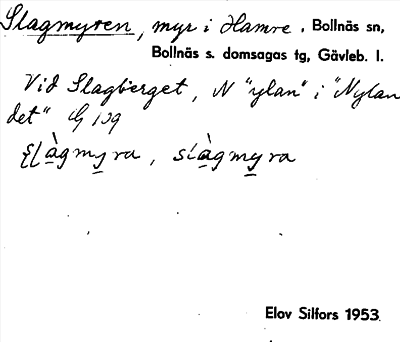 Slagmyren, myr i Hamre. Bollnäs sn,
Bollnäs s. domsagas tg, Gävleb. l.
Vid Slagberget, N "ylan" i "Nylan
det"
slàgmyra, slàgmyra
Elov Silfors 1953